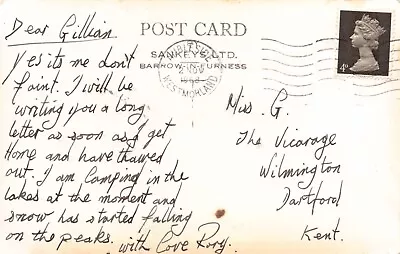 Dear Gillian.
POST CARD
SANKEYS LTD.
BARROW-IN-FURNESS
NOV
WESTMORLAND
4D
Yes its me don't
faint. I will be
writing you a long
letter as soon as I get
Home and have thawed
out. I am Camping in the
lakes at the moment and
snow has started falling
on the peaks.
with Love Rory.
Miss. G.
The Vicarage
Wilmington
Dartford
Kent.